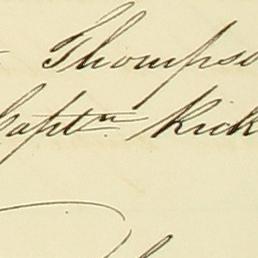 Thompso
Captn Kick